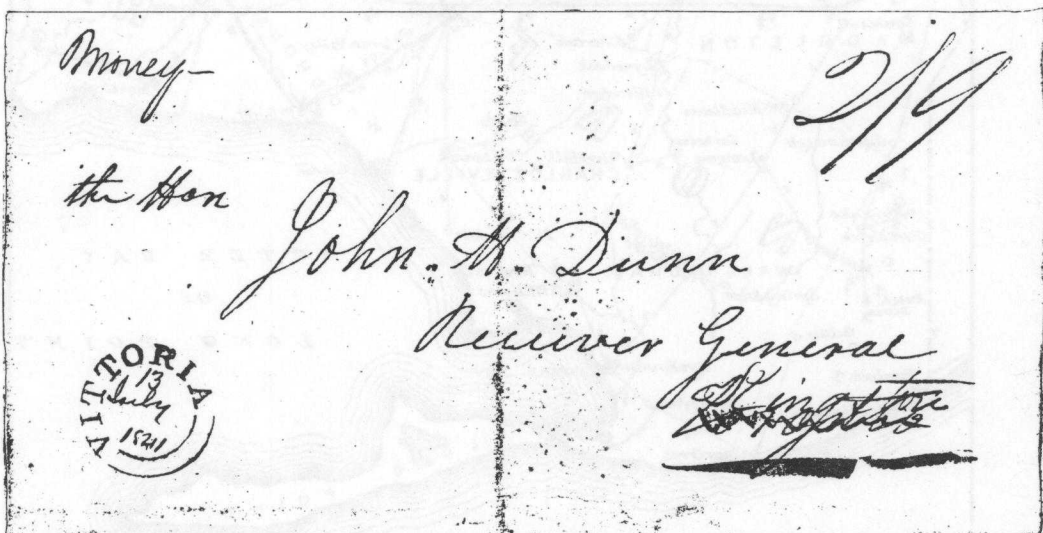 Money—
2/9
the Hon
John. H. Dunn
Receiver General
Kingston
VITTORIA
13
July
1841